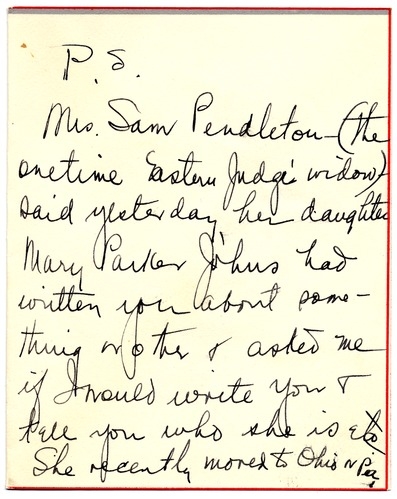 P.S.
Mrs. Sam Pendleton - (the
onetime Eastern Judge's widow)
said yesterday her daughter
Mary Parker Johns had
written you about some-
thing or other & asked me
if I would write you &
tell you who she is etc
She recently moved to Ohio or Pa